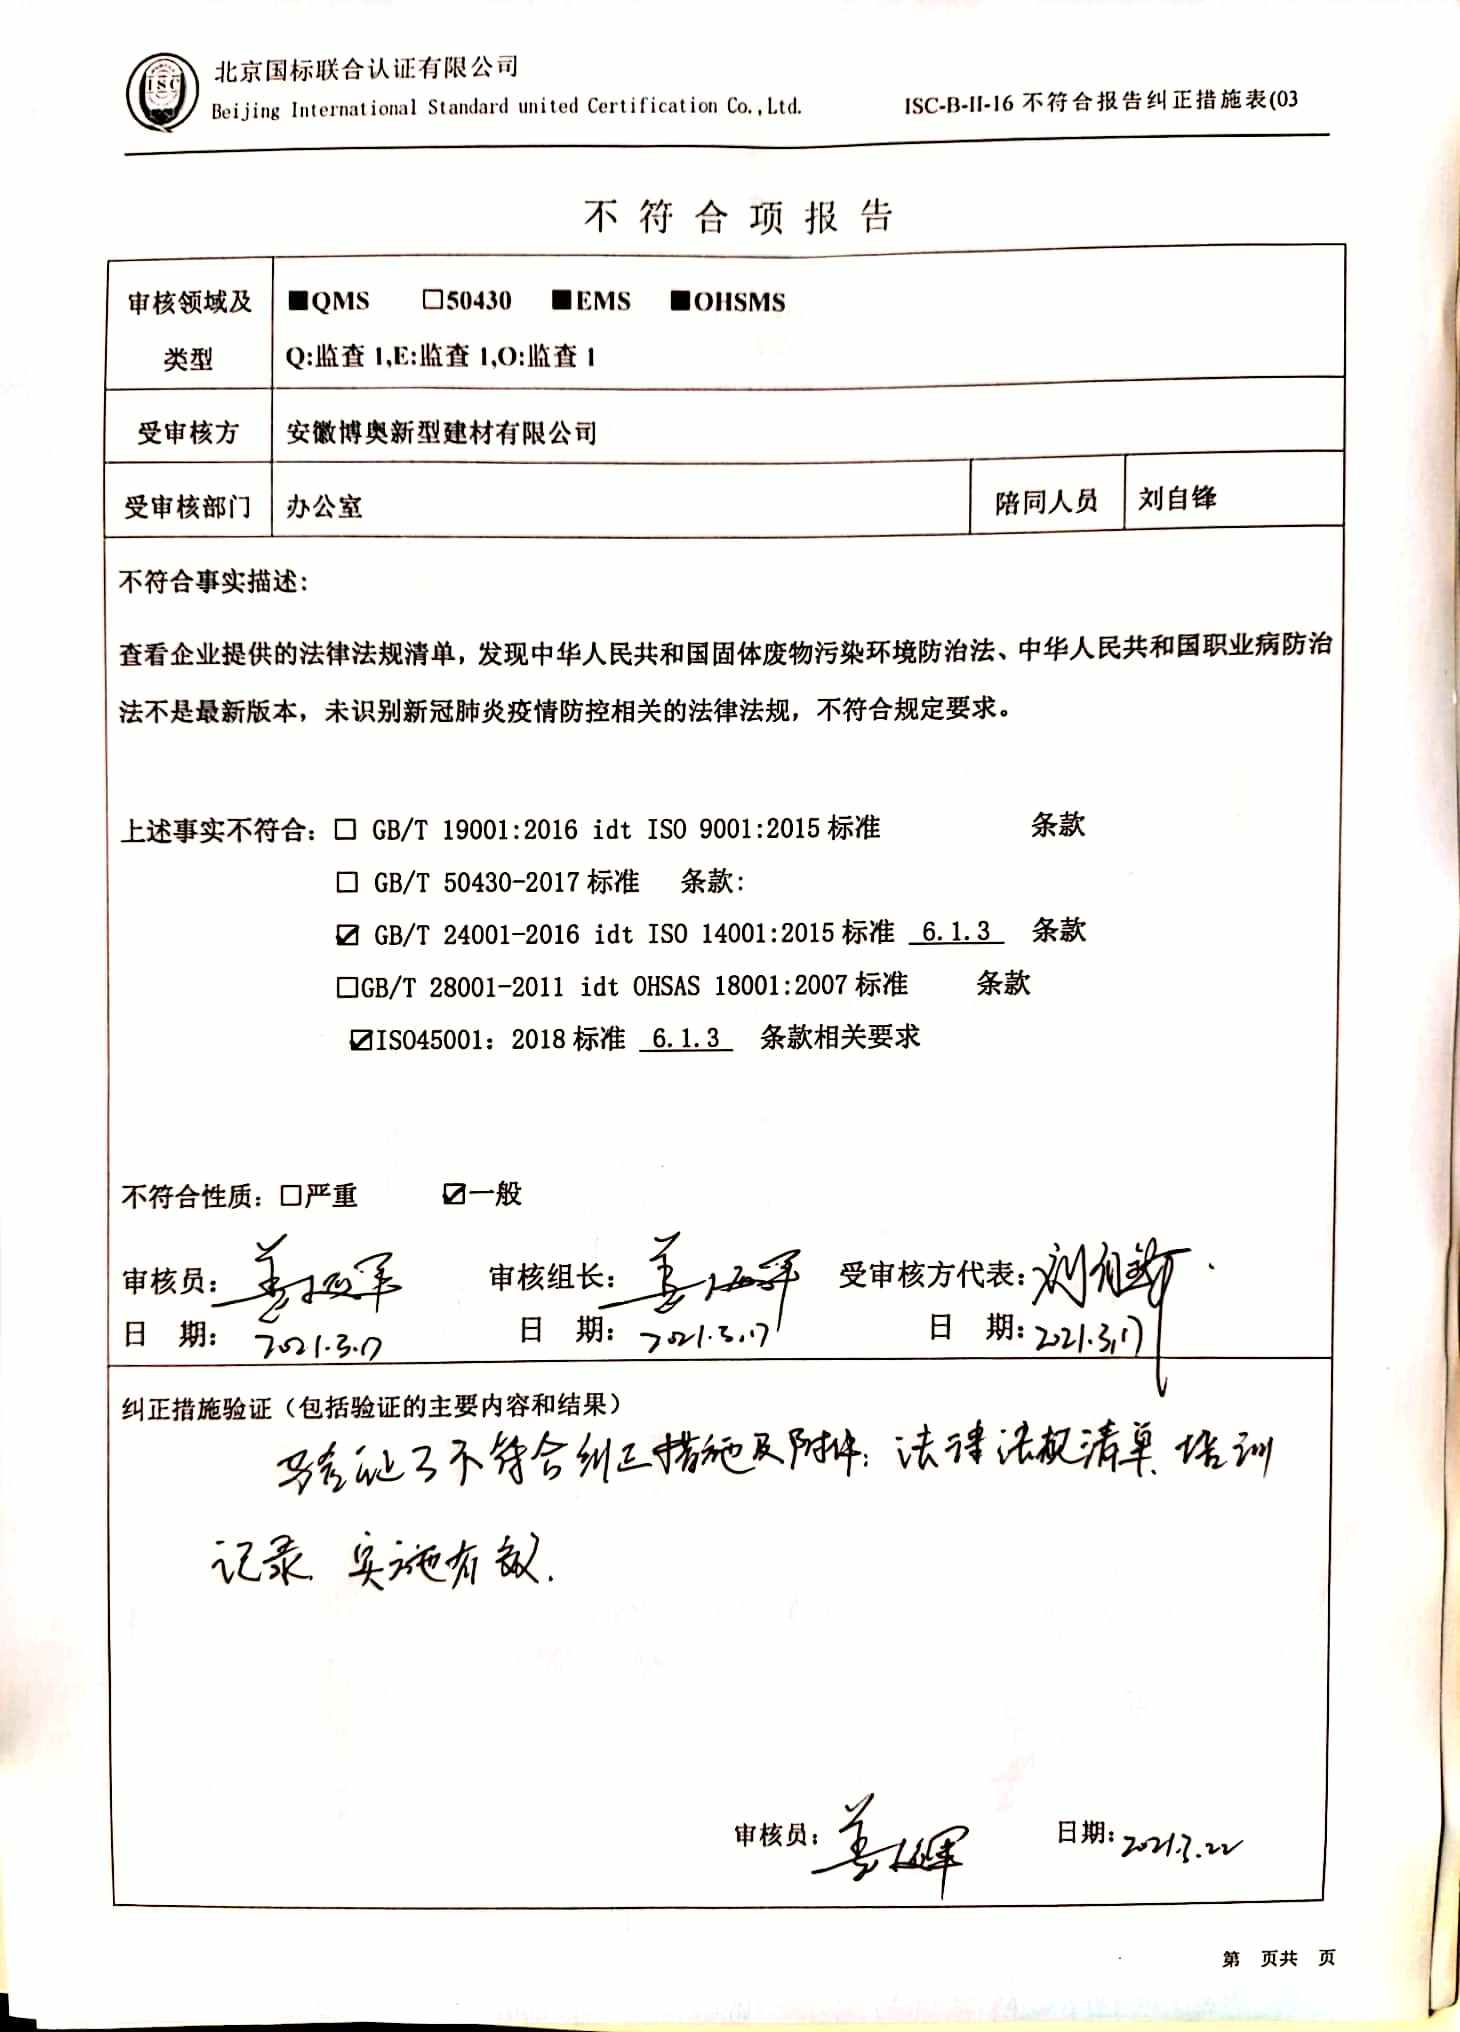 ISC
北京国标联合认证有限公司
Beijing International Standard united Certification Co.,Ltd.
ISC-B-II-16 不符合报告纠正措施表(03
不符合项报告
审核领域及类型
■QMS □50430 ■EMS ■OHSMS
Q:监查 1,E:监查 1,O:监查 1
受审核方 安徽博奥新型建材有限公司
受审核部门 办公室 陪同人员 刘自锋
不符合事实描述:
查看企业提供的法律法规清单，发现中华人民共和国固体废物污染环境防治法、中华人民共和国职业病防治
法不是最新版本，未识别新冠肺炎疫情防控相关的法律法规，不符合规定要求。
上述事实不符合: □ GB/T 19001:2016 idt ISO 9001:2015 标准 条款
□ GB/T 50430-2017 标准 条款:
☑ GB/T 24001-2016 idt ISO 14001:2015 标准 6.1.3 条款
□GB/T 28001-2011 idt OHSAS 18001:2007 标准 条款
☑ISO45001: 2018 标准 6.1.3 条款相关要求
不符合性质: □严重 ☑一般
审核员: 审核组长: 受审核方代表: 刘自锋
日 期: 2021.3.17 日 期: 2021.3.17 日 期: 2021.3.17
纠正措施验证（包括验证的主要内容和结果）
验证了不符合纠正措施及附件: 法律法规清单、培训
记录、实施有效.
审核员: 日期: 2021.3.22
第 页共 页